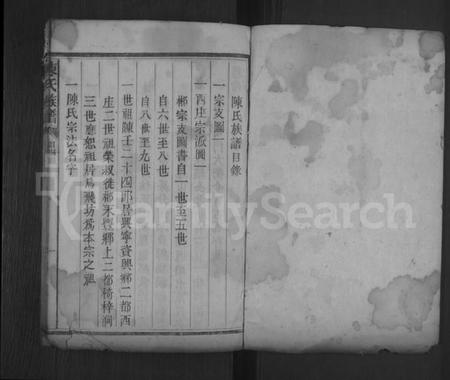 陳氏族譜目錄
一宗支圖一
一西庄宗派圖一
郴宗支圖書自一世至五世
自六世至八世
自八世至九世
一世祖陳壬二十四郎居興寧資興鄉二都西
庄二世祖榮叔徙郴來鄉上二都椅梓洞
三世應恕祖居馬飛坊為本宗之祖
一陳氏宗法名字
陳氏族譜
FamilySearch